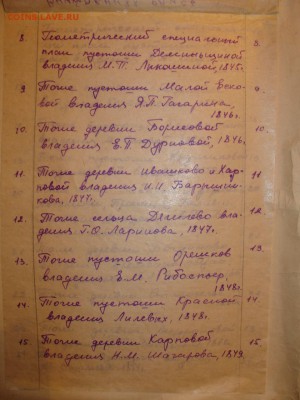 COINSLAVE.RU
8 Геометрический специальный 8.
план пустоши Деменьшиной
владения М.П. Лукошкиной, 1845г.
9 Тоже пустоши Малой
владения Гагарина, 9.
1846г.
10. Тоже деревни Борисовой 10.
владения Е.П. Дурновой, 1846.
11. Тоже деревни Ивашково и Кар- 11.
повой владения И.И. Барышни-
кова, 1847г.
12. Тоже сельца Дягилево вла- 12.
дения Г.О. Ларинова, 1847г.
13. Тоже пустоши Орешков 13.
владения Е.М. Рибопьер,
1848г.
14. Тоже пустоши Красной 14.
владения 1848г.
15. Тоже деревни Карповой 15.
владения Н.М. Шагарова, 1849